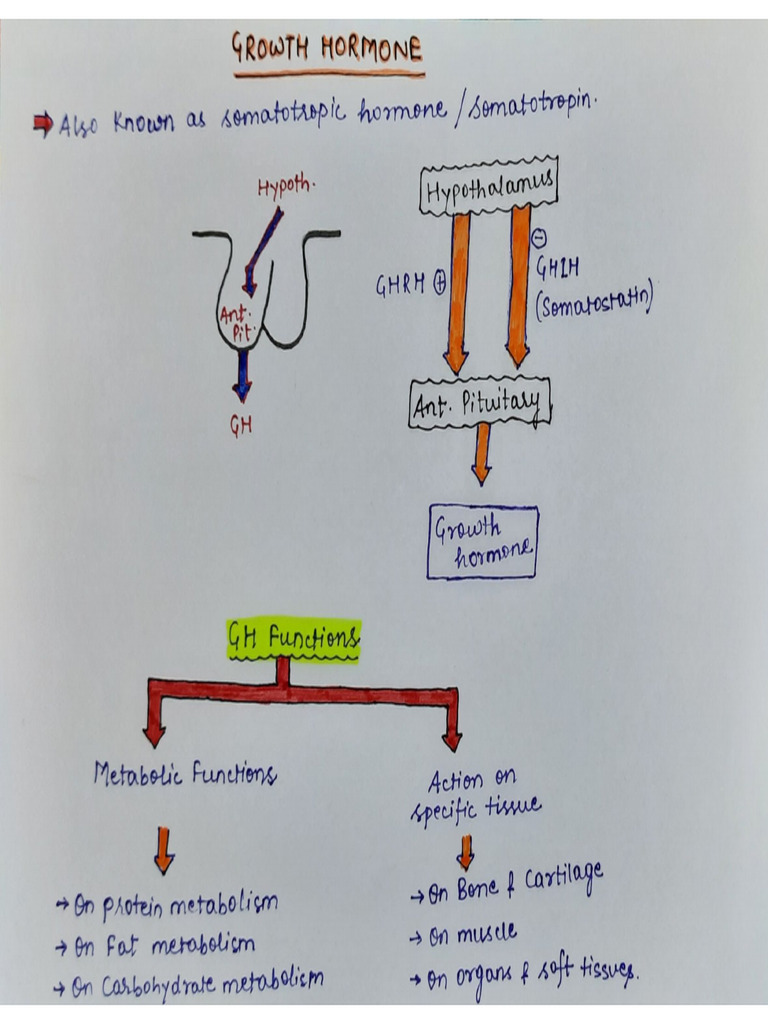 GROWTH HORMONE
⇒ Also known as somatotropic hormone / somatotropin.
Hypoth.
Ant.
Pit.
GH
Hypothalamus
GHRH ⊕
⊖
GHIH
(Somatostatin)
Ant. Pituitary
Growth
hormone
GH Functions
Metabolic Functions
→ On protein metabolism
→ On Fat metabolism
→ On Carbohydrate metabolism
Action on
specific tissue
→ On Bone & Cartilage
→ On muscle
→ On organs & soft tissues.